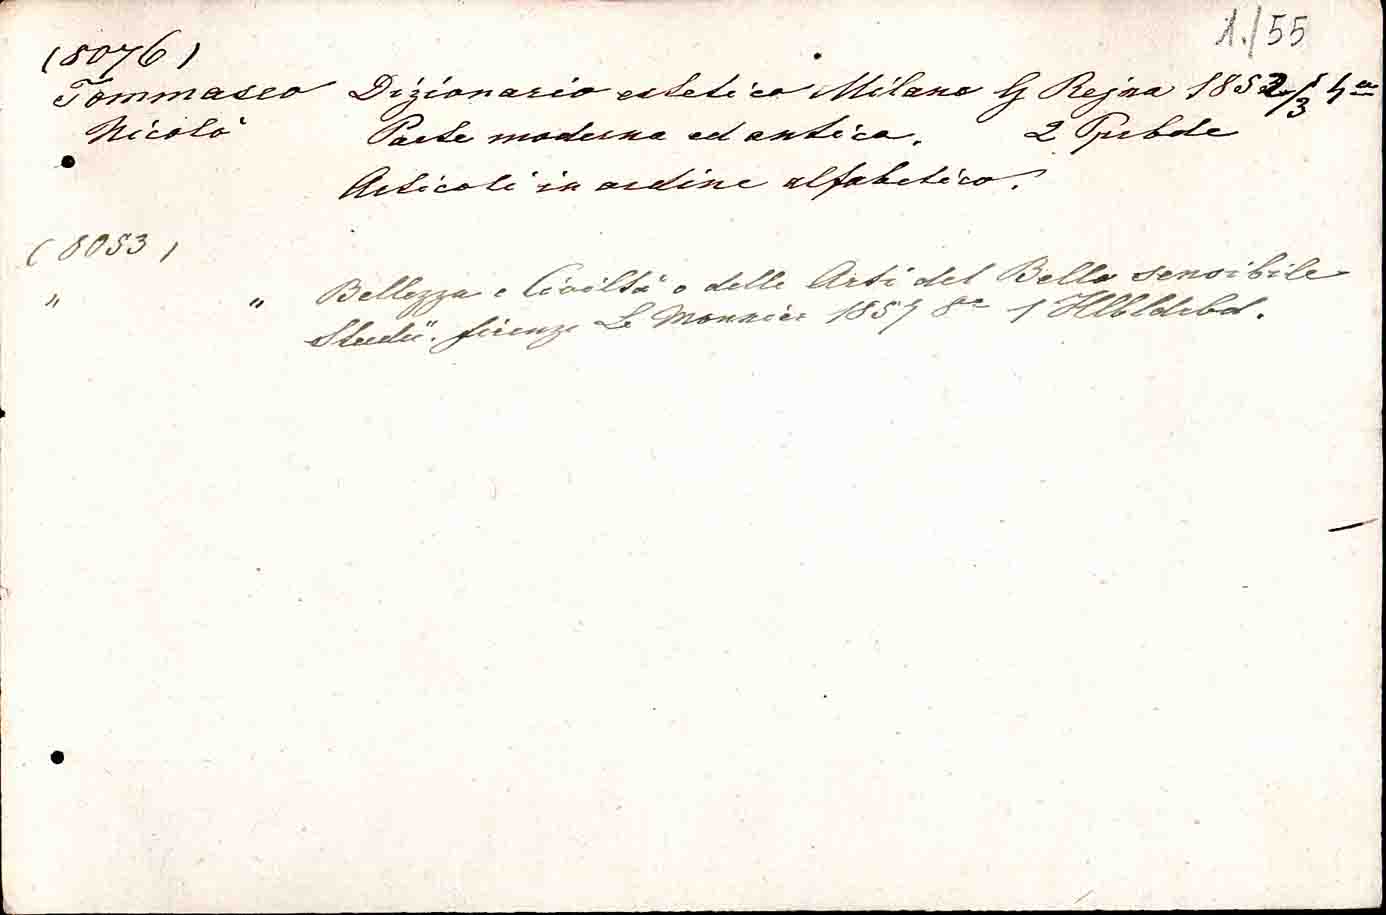 1./55
(8076)
Tommaseo Dizionario estetico Milano G Rejna 1852/3 4º
Nicolò Parte moderna ed antica. 2 Ppbde
Articoli in ordine alfabetico.
(8053)
" " Bellezza e Civiltà o delle Arti del Bello sensibile
Studii. firenze Le Monnier 1857 8º 1 Hlbldrbd.